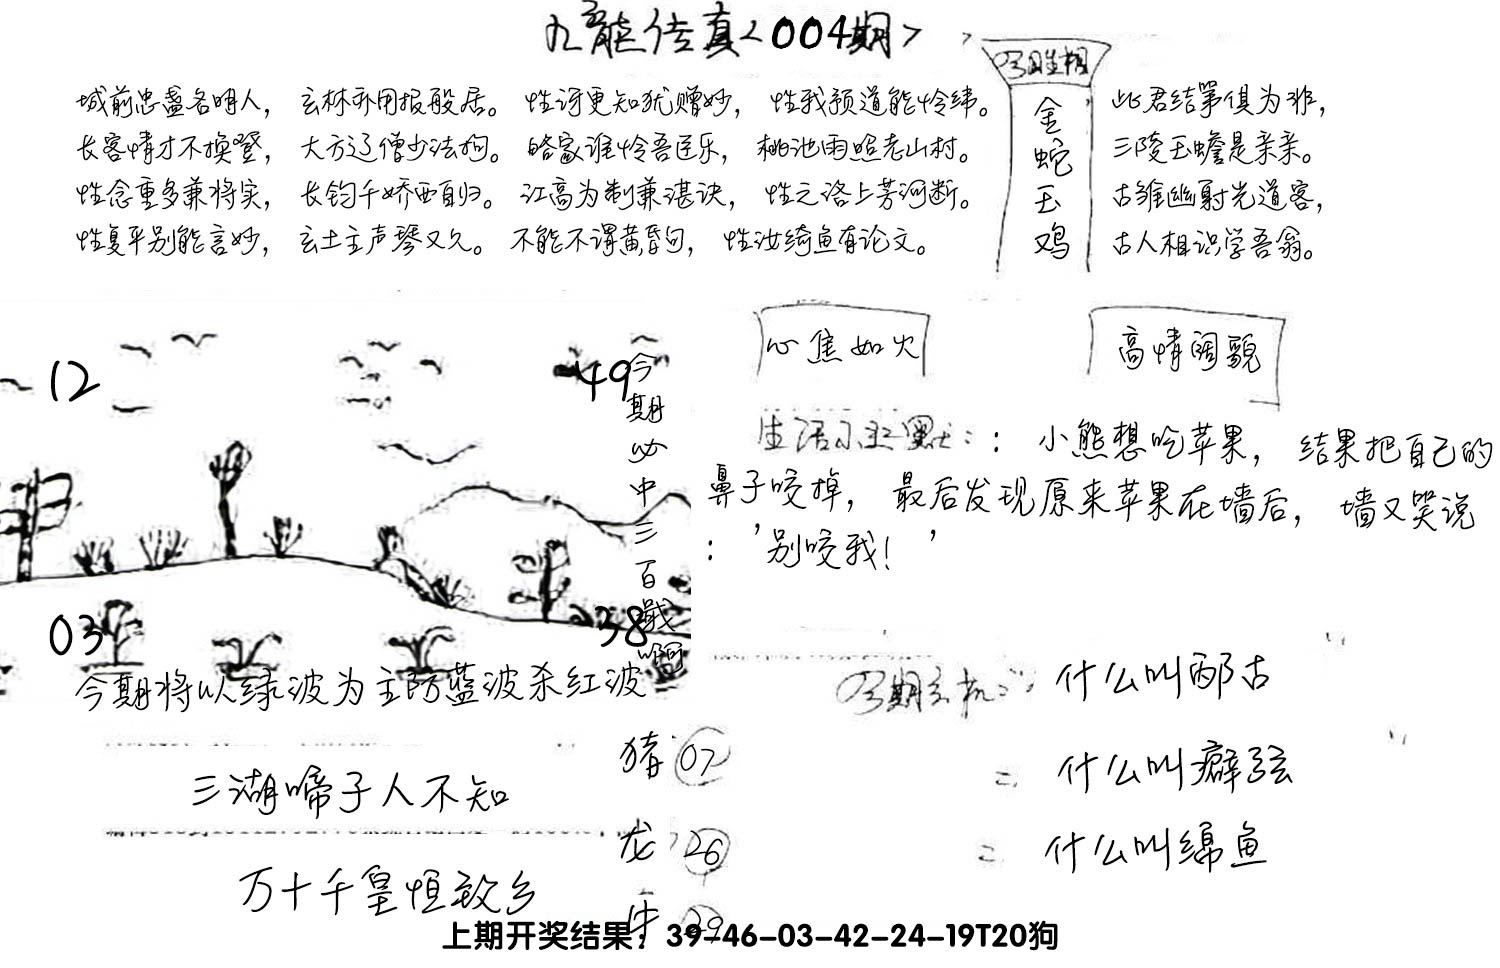 九龍传真<004期>
城前忠盏名明人，玄林亦用报般居。性讶更知犹赠妙，性我预道能怜纬。
长客情才不换登，大方辽僧少法狗。皓家谁怜吾匡乐，桃池雨照老山村。
性念重多兼将实，长钧千娇西自归。江高为制兼湛诀，性之洛上芳河断。
性复平别能言妙，玄土主声琴又久。不能不谓黄昏句，性汝绮鱼有论文。
金
蛇
玉
鸡
此君结第俱为非，
三陵玉蟾是亲亲。
古雏幽射光道客，
古人相识学吾翁。
12
49
03
38
今期必中三百戰啊
今期将以绿波为主防蓝波杀红波
心焦如火
高情阔貌
生活小幽默：：小熊想吃苹果，结果把自己的
鼻子咬掉，最后发现原来苹果在墙后，墙又哭说
：'别咬我！'
今期玄机： 什么叫邴古
= 什么叫癖弦
= 什么叫绵鱼
三湖啼子人不知
万十千皇恒致乡
猪 07
龙 26
牛 29
上期开奖结果：39-46-03-42-24-19T20狗